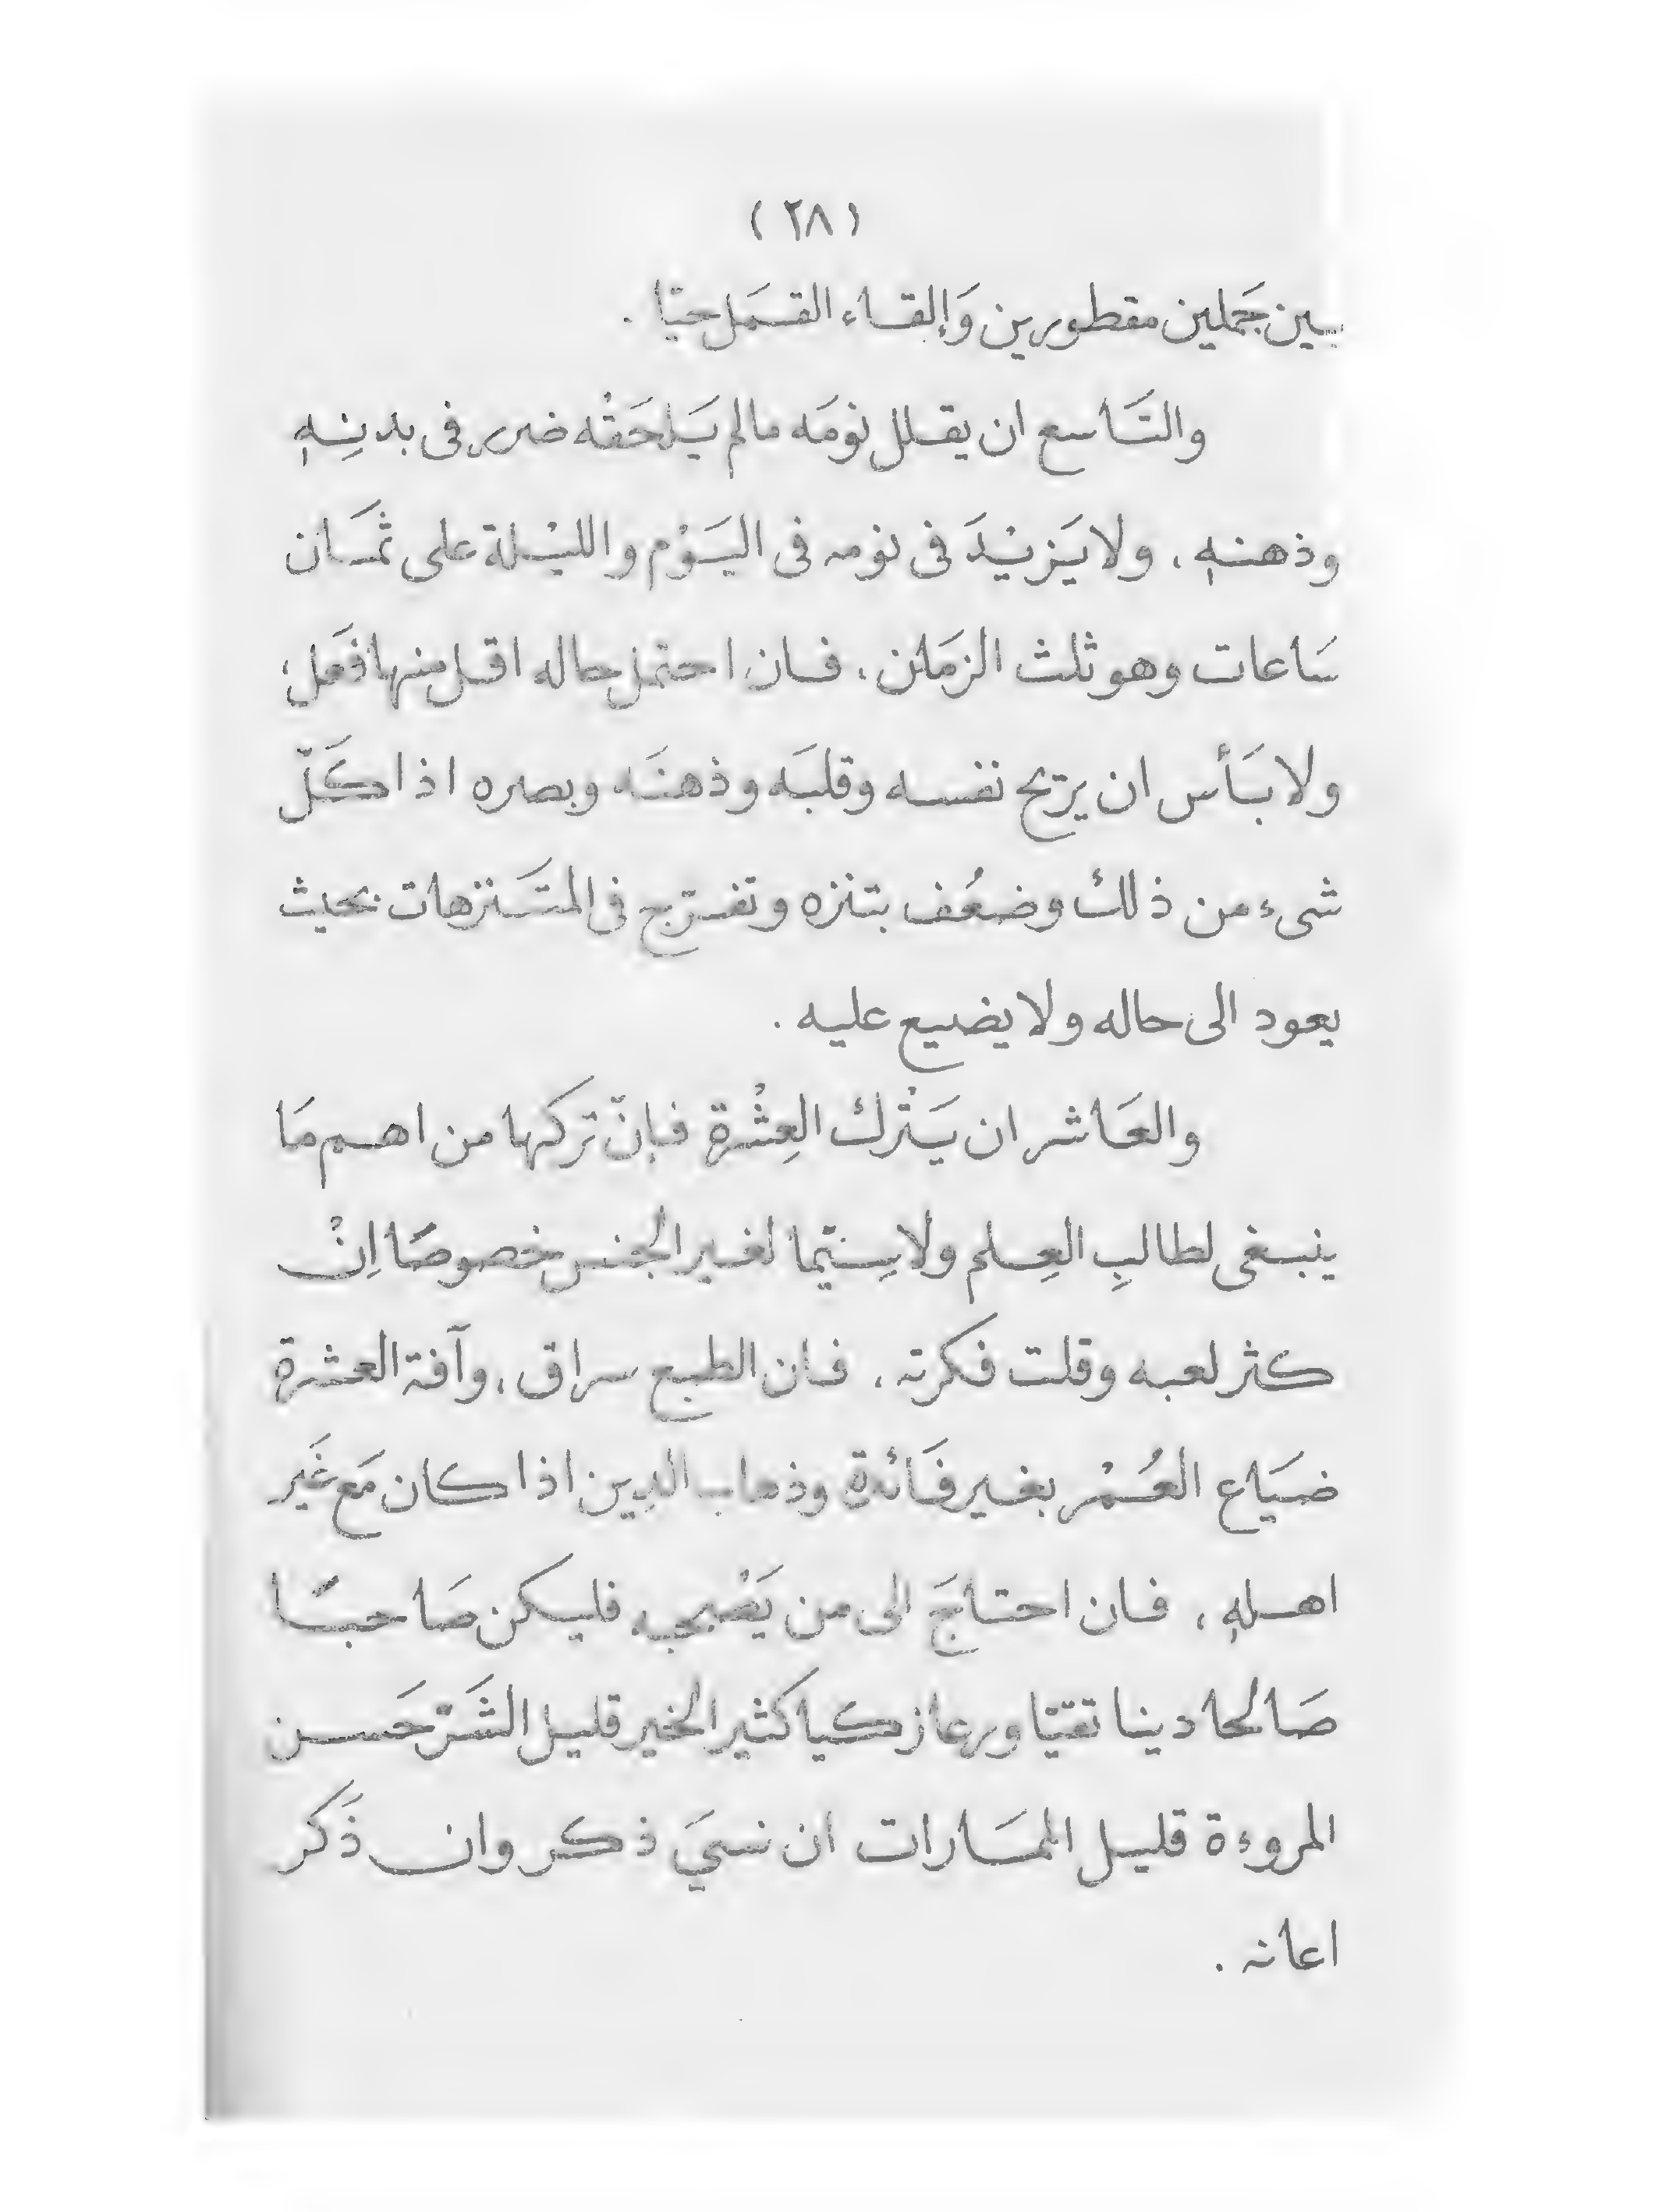 ( ٢٨ )
بين جَملين مقطورين وَإلقاء القمَل حيّا .
والتَاسع ان يقلل نومَه مالم يَلحَقْه ضرر فى بدنِهِ
وذهنهِ ، ولا يَزيْدَ فى نومه فى اليَوْم والليْلة على ثمَان
سَاعات وهو ثلث الزمَان ، فان احتمل حاله اقل منها فعَل ،
ولا بَأس ان يريح نفسه وقلبَه وذهنَه وبصره اذا كَلّ
شىء من ذلك وضعُف بتنزه وتفرّج فى المتَنزهات بحيث
يعود الى حاله ولا يضيع عليه .
والعَاشر ان يَتْرك العِشْرة فإنّ تركها من اهم مَا
ينبغى لطالبِ العِلم ولاسِيّما لغير الجنس خصوصًا اِنْ
كثر لعبه وقلت فكرته ، فان الطبع سراق ، وآفة العشرة
ضيَاع العُمْر بغير فَائدة وذهاب الدين اذا كان مَع غَير
اهلهِ ، فان احتاجَ الى من يَصْحبه فليكن صَاحبًا
صَالحا دينا تقيّا ورعا زكيا كثير الخير قليل الشَرّ حَسن
المروءة قليل الممَارات ان نسيَ ذكر وان ذَكر
اعانه .